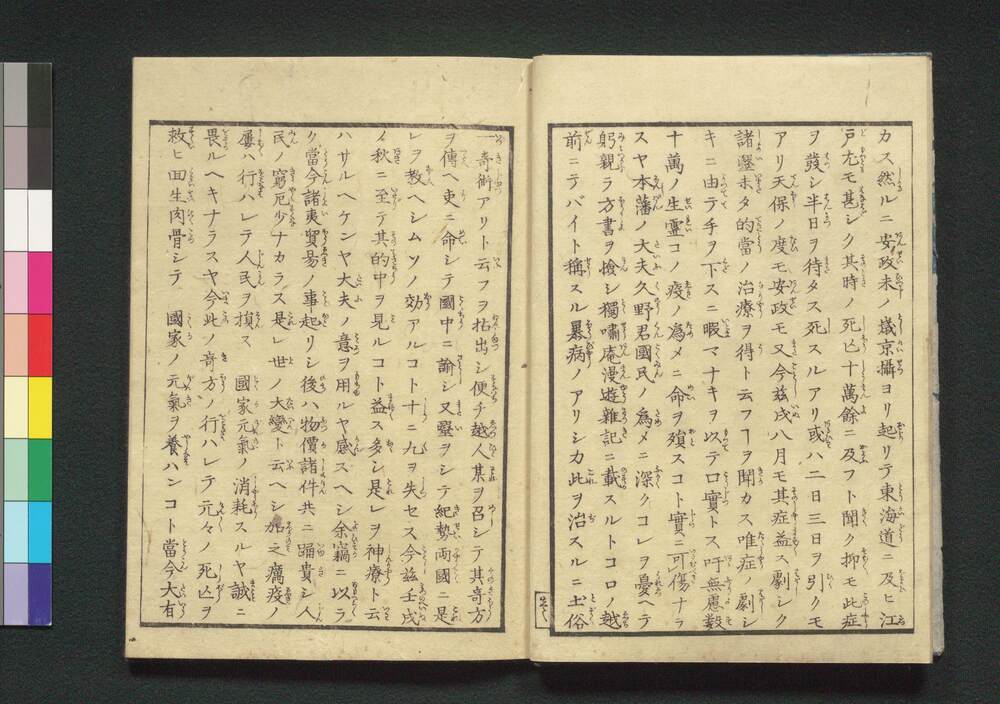 カス然ルニ安政未ノ歳京攝ヨリ起リテ東海道ニ及ヒ江
戸尤モ甚シク其時ノ死亾十萬餘ニ及フト聞ク抑モ此症
ヲ發シ半日ヲ待タス死スルアリ或ハ二日三日ヲ引クモ
アリ天保ノ度モ安政モ又今茲戌八月モ其症益〻劇シク
諸醫未タ的當ノ治療ヲ得ト云フヿヲ聞カス唯症ノ劇シ
キニ由テ手ヲ下スニ暇マナキヲ以テ口實トス吁無慮數
十萬ノ生靈コノ疫ノ爲メニ命ヲ殞スコト實ニ可傷ナラ
スヤ本藩ノ大夫久野君國民ノ爲メニ深クコレヲ憂ヘテ
躬親ラ方書ヲ撿シ獨嘯庵漫遊雜記ニ載スルトコロノ越
前ニテバイト稱スル暴病ノアリシカ此ヲ治スルニ土俗
一奇術アリト云フヲ拈出シ便チ越人某ヲ召シテ其奇方
ヲ傳ヘ吏ニ命シテ國中ニ諭シ又醫ヲシテ紀勢兩國ニ是
レヲ教ヘシムソノ効アルコト十ニ九ヲ失セス今茲壬戌
ノ秋ニ至テ其的中ヲ見ルコト益ス多シ是レヲ神療ト云
ハサルヘケンヤ大夫ノ意ヲ用ルヤ感スヘシ余竊ニ以ラ
ク當今諸夷貿易ノ事起リシ後ハ物價諸件共ニ踊貴シ人
民ノ窮厄少ナカラス是レ世ノ大變ト云ヘシ加之癘疫ノ
屢ハ行ハレテ人民ヲ損ス 國家元氣ノ消耗スルヤ誠ニ
畏ルヘキナラスヤ今此ノ奇方ノ行ハレテ元々ノ死亾ヲ
救ヒ回生肉骨シテ 國家ノ元氣ヲ養ハンコト當今大有